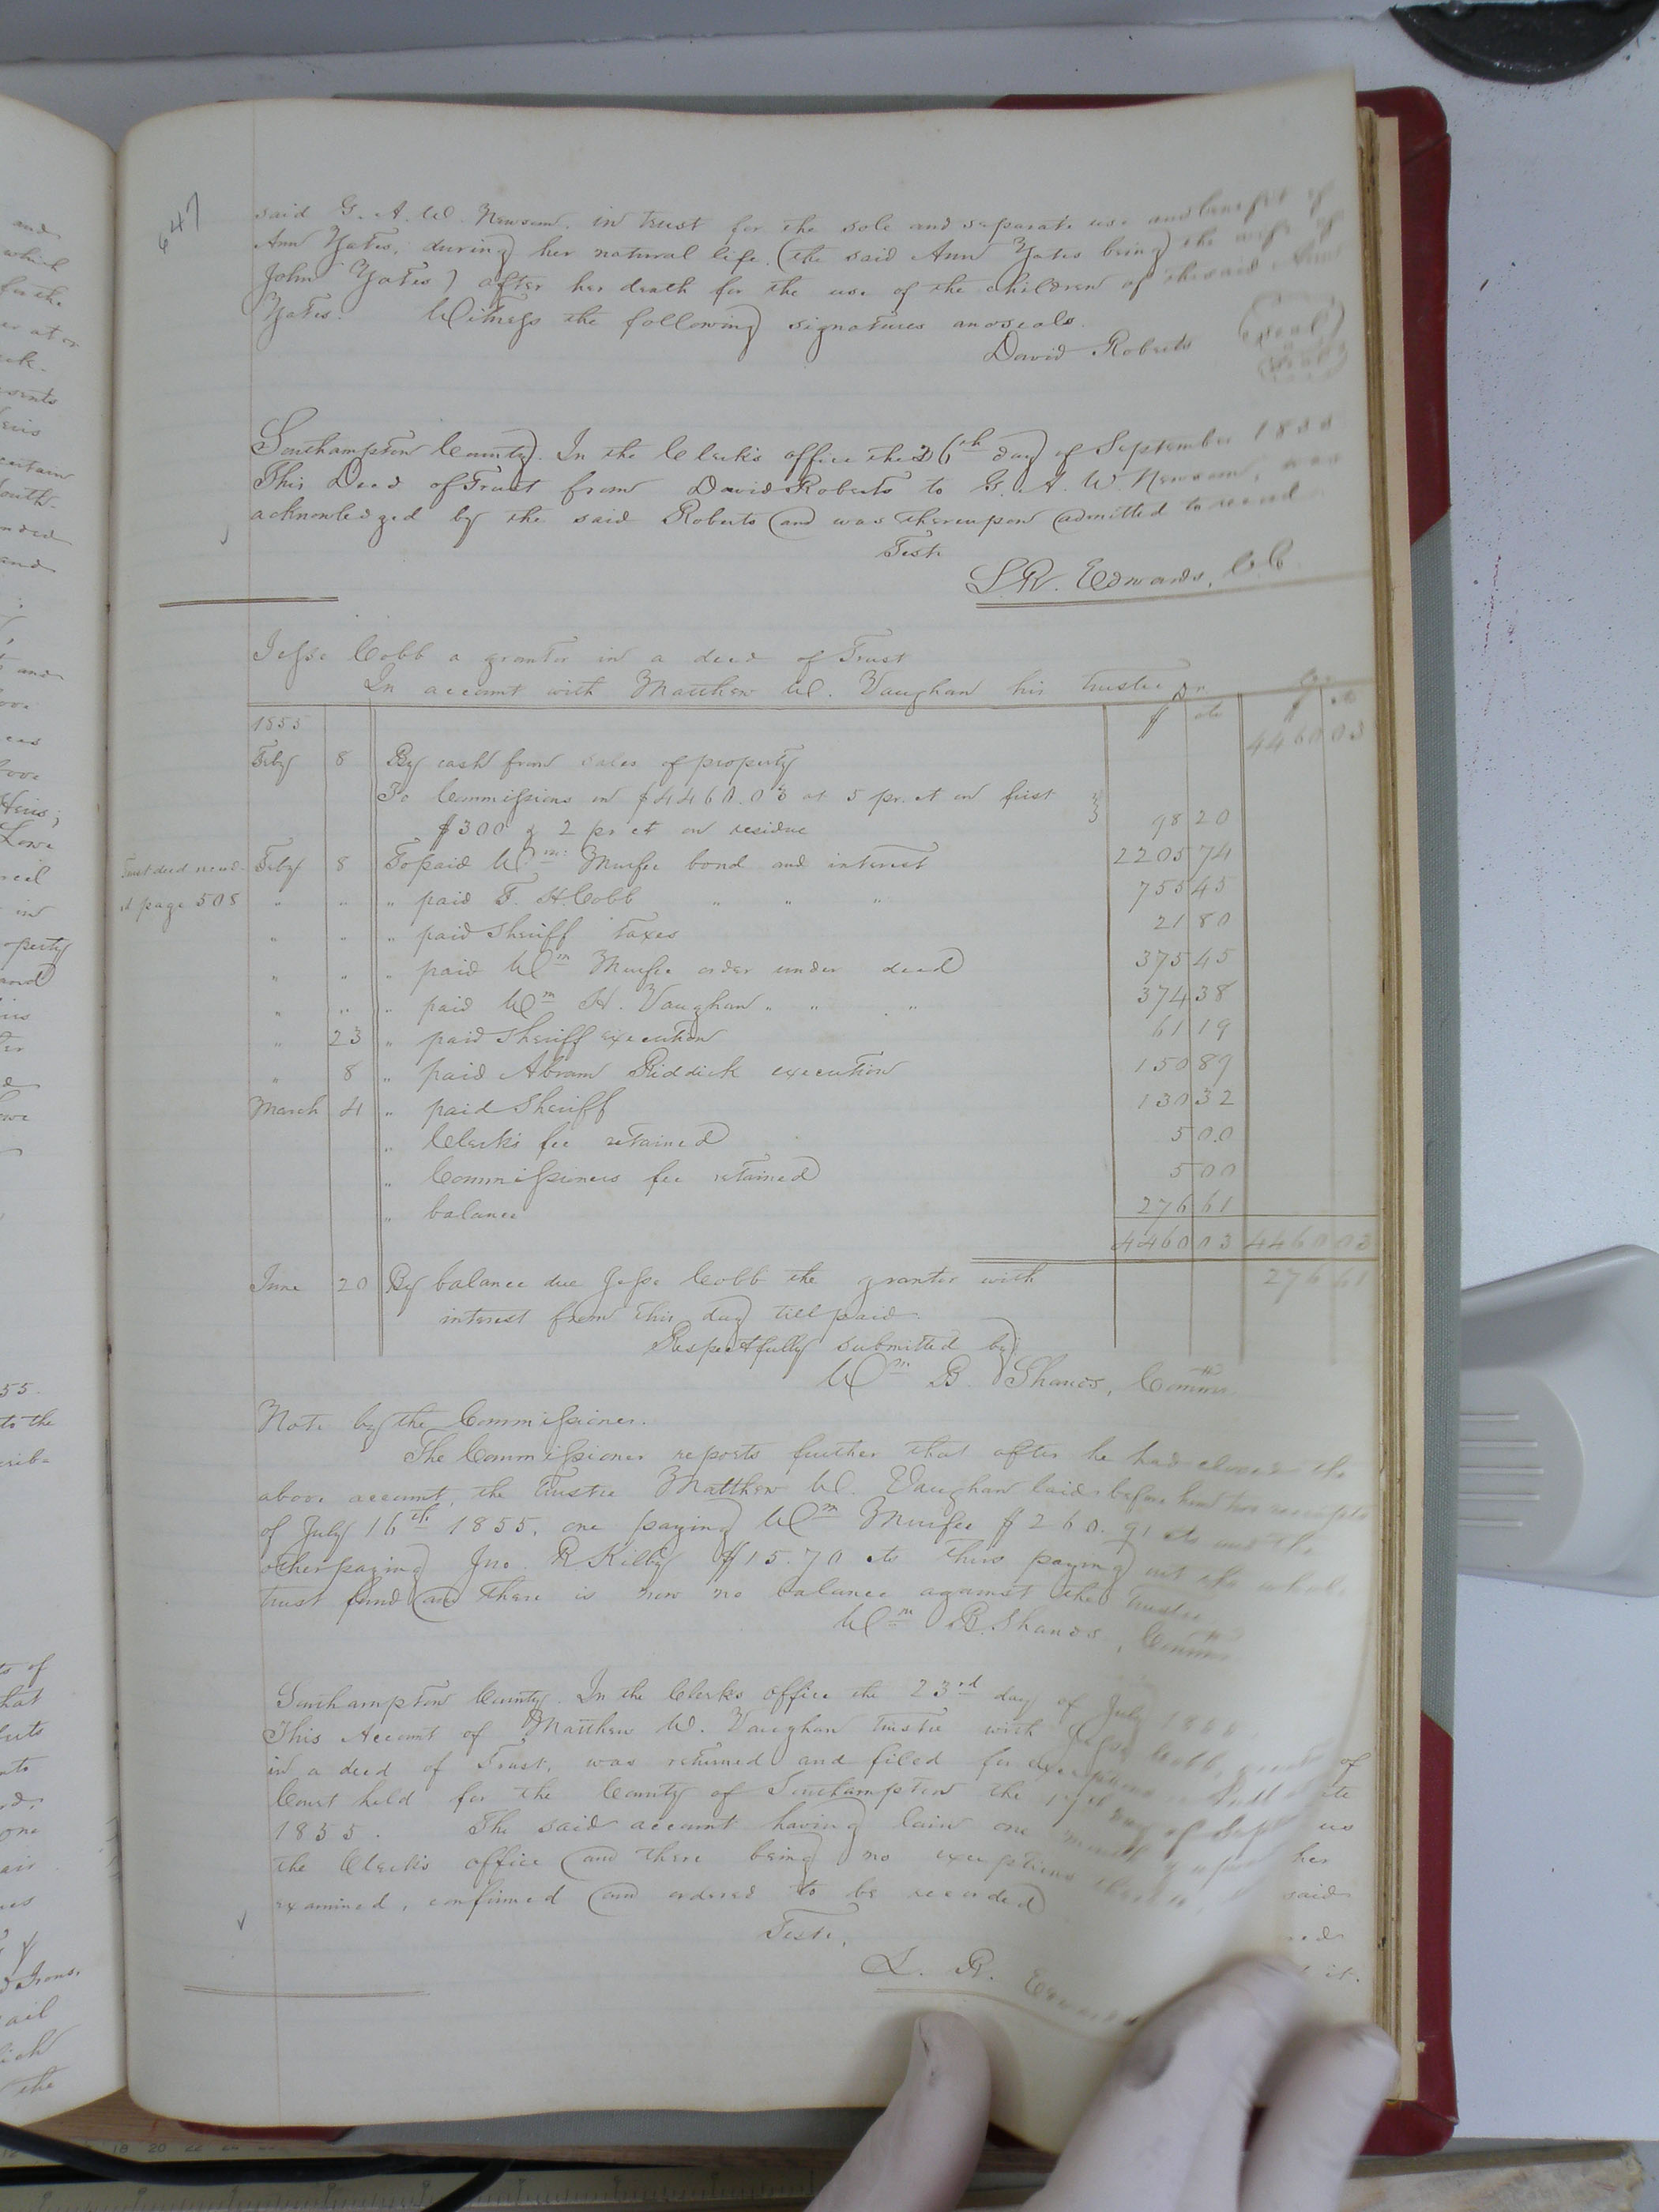 647
said G. A. W. Newsom, in trust for the sole and separate use and benefit of
Ann Yates, during her natural life, (the said Ann Yates being the wife of
John Yates) after her death for the use of the children of the said Ann
Yates. Witness the following signatures and seals.
David Roberts seal
seal
Southampton County. In the Clerk's office the 26th day of September 1855
This Deed of Trust from David Roberts to G. A. W. Newsom, was
acknowledged by the said Roberts and was thereupon admitted to record
Teste
L. R. Edwards, C. C.
Jesse Cobb a grantor in a deed of Trust
In account with Matthew W. Vaughan his trustee Dr. Cr.
1855 $ cts $ cts
Feby 8 By cash from sales of property 4460 03
To Commissions on $4460.03 at 5 pr. ct on first
$300 & 2 pr ct on residue 98 20
Trust deed record. Feby 8 To paid Wm. Murfee bond and interest 2205 74
at page 505 " " " paid T. H. Cobb " " " 755 45
" " " paid Sheriff taxes 21 80
" " " paid Wm Murfee order under deed 375 45
" " " paid Wm H. Vaughan " " " 374 38
" 23 " paid Sheriff execution 61 19
" 8 " paid Abram Riddick execution 150 89
March 4 " paid Sheriff 130 32
" Clerk's fee retained 5 00
" Commissioners fee retained 5 00
" balance 276 61
4460 03 4460 03
June 20 By balance due Jesse Cobb the grantor with 276 61
interest from this day till paid.
Respectfully submitted by
Wm B. Shands, Commr
Note by the Commissioner.
The Commissioner reports further that after he had closed the
above account, the trustee Matthew W. Vaughan laid before him two receipts
of July 16th 1855, one paying Wm Murfee $260.91 cts and the
other paying Jno. R. Kilby $15.70 cts thus paying out the whole
trust fund and there is now no balance against the trustee
Wm B. Shands, Commr
Southampton County. In the Clerk's office the 23rd day of July 1855
This Account of Matthew W. Vaughan trustee with Jesse Cobb,
in a deed of Trust, was returned and filed for exceptions
Court held for the County of Southampton the day of Sept
1855. The said account having lain one month
the Clerk's office and there being no exceptions thereto,
examined, confirmed and ordered to be recorded
Teste,
L. R. Edwards